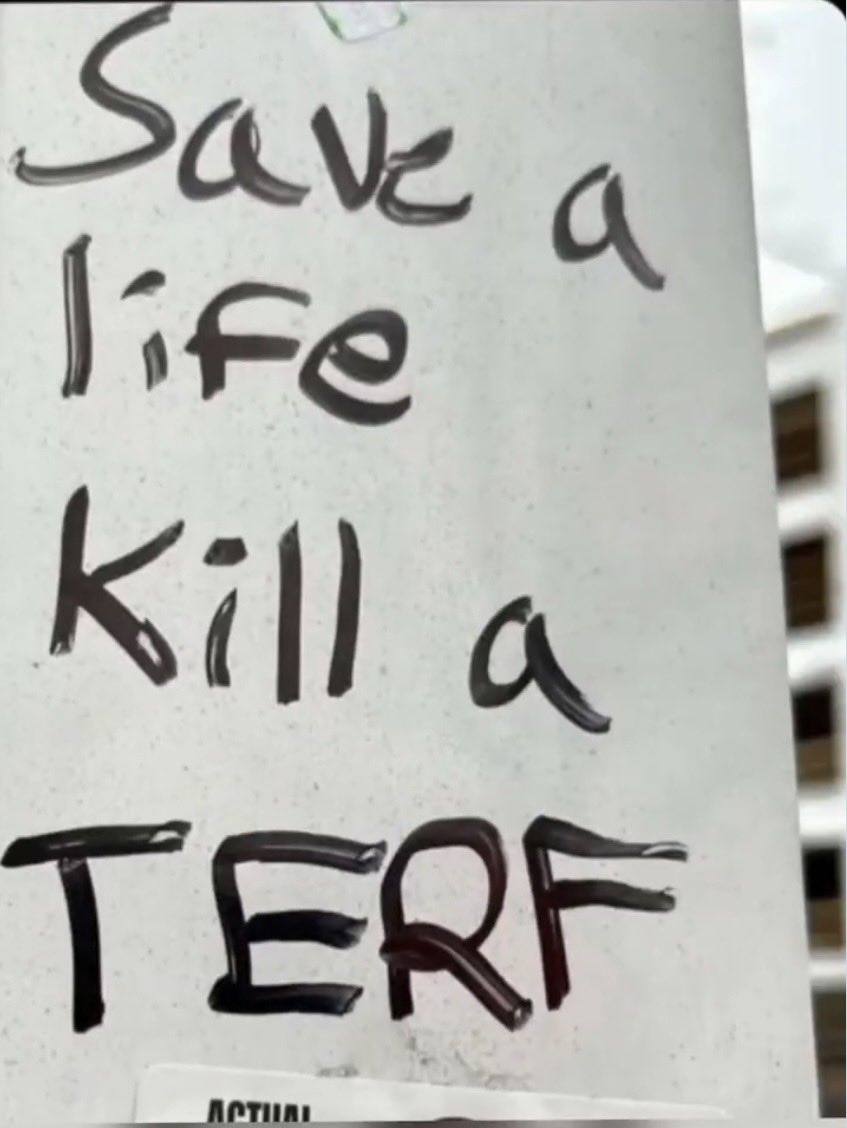 Save a
life
Kill a
TERF
ACTUAL